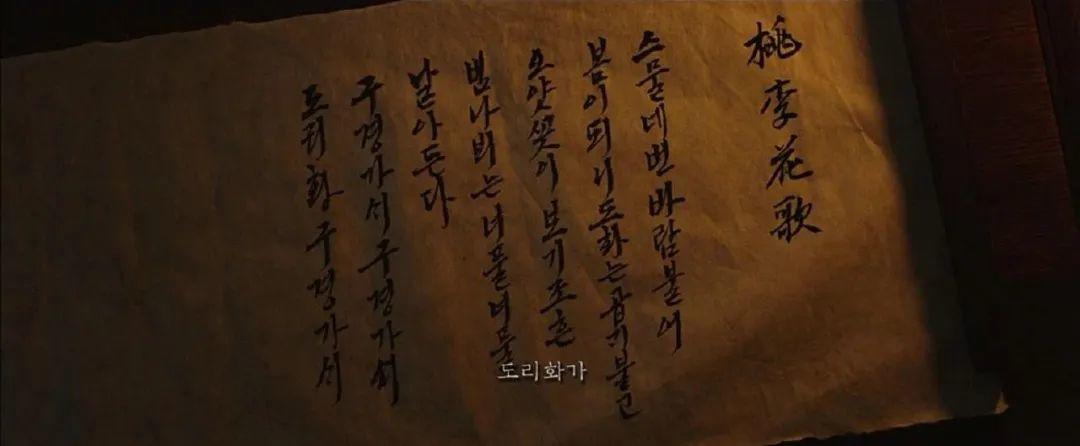 桃李花歌
스물네번 바람불어
봄이되니 도화는 곱게붉고
오얏꼿이 보기조흔
범나비는 너풀너풀
날아든다
구경가세 구경가세
도리화 구경가세
도리화가